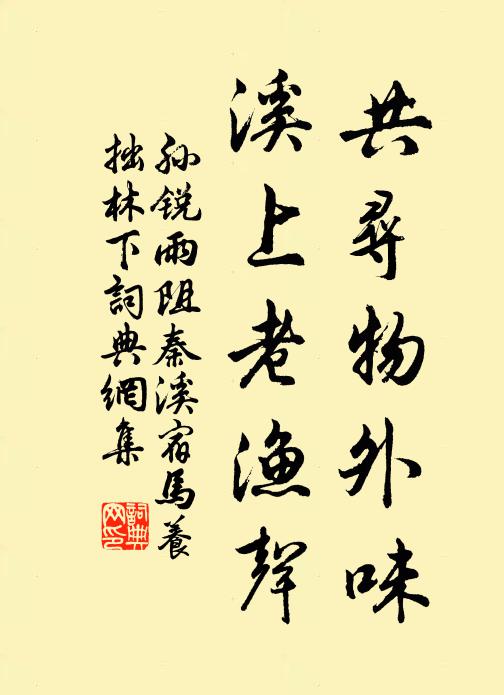 共尋物外味
溪上老漁聲
孙锐雨阻秦溪宿馬養
拙林下詞典網集
詞典网印